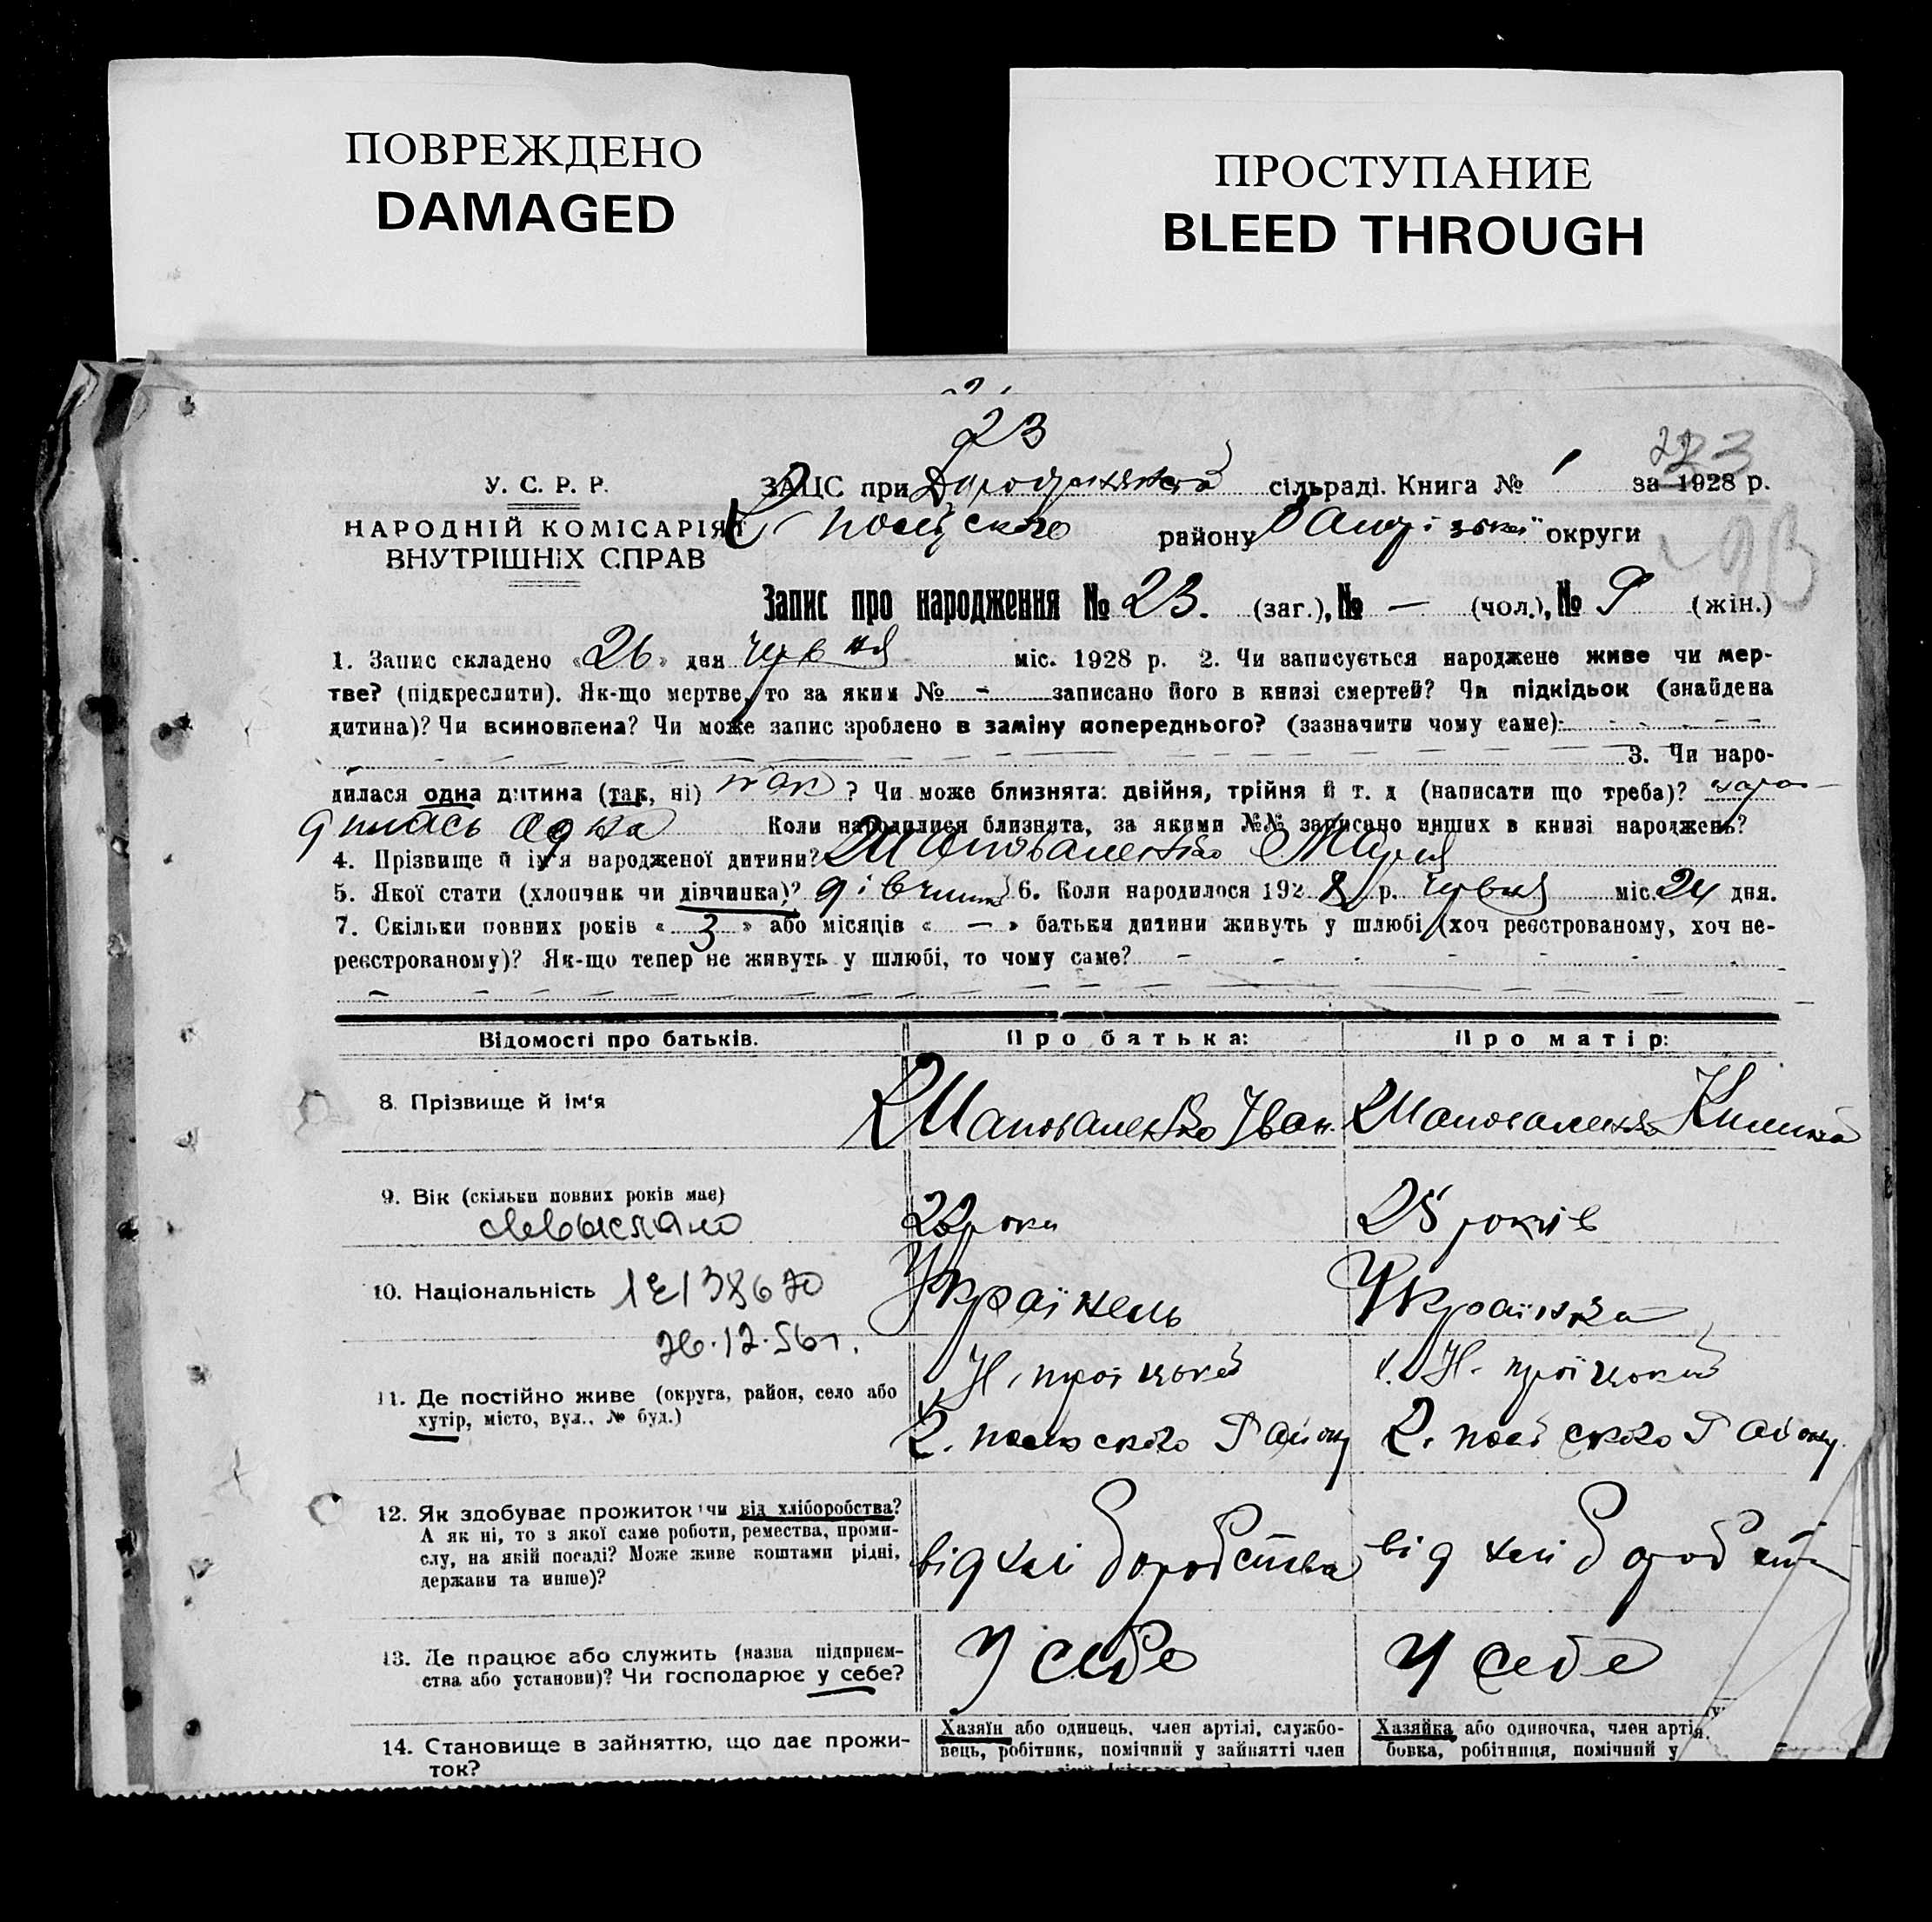 ПОВРЕЖДЕНО
DAMAGED
ПРОСТУПАНИЕ
BLEED THROUGH
23
У. С. Р. Р.
НАРОДНІЙ КОМІСАРІЯТ
ВНУТРІШНІХ СПРАВ
ЗАЦС при сільраді. Книга № 1 за 1928 р.
району округи
Запис про народження № 23. (заг.), № — (чол.), № 9 (жін.)
1. Запис складено «26» дня червня міс. 1928 р. 2. Чи записується народжене живе чи мер-
тве? (підкреслити). Як-що мертве, то за яким № - записано його в книзі смертей? Чи підкідьок (знайдена
дитина)? Чи всиновлена? Чи може запис зроблено в заміну попереднього? (зазначити чому саме):
3. Чи наро-
дилася одна дитина (так, ні) так ? Чи може близнята: двійня, трійня й т. д (написати що треба)? наро-
дилась одна Коли народилися близнята, за якими №№ записано инших в книзі народжень?
4. Прізвище й ім'я народженої дитини? Шаповаленко Марія
5. Якої стати (хлопчик чи дівчинка)? дівчинка 6. Коли народилося 1928 р. червня міс. 24 дня.
7. Скільки повних років «3» або місяців « — » батьки дитини живуть у шлюбі (хоч реєстрованому, хоч не-
реєстрованому)? Як-що тепер не живуть у шлюбі, то чому саме?
Відомості про батьків. Про батька: Про матір:
8. Прізвище й ім'я Шаповаленко Іван. Шаповаленко
9. Вік (скільки повних років має) роки 25 років
10. Національність Українець Українка
26.12.56г.
11. Де постійно живе (округа, район, село або
хутір, місто, вул., № буд.)
х. Н. троїцькій х. Н. троїцькій
Району Району.
12. Як здобуває прожиток чи від хліборобства?
А як ні, то з якої саме роботи, ремества, проми-
слу, на якій посаді? Може живе коштами рідні,
держави та инше)?
від хліборобства від хліборобства
13. Де працює або служить (назва підприєм-
ства або установи)? Чи господарює у себе?
У себе У себе
14. Становище в зайняттю, що дає прожи-
ток?
Хазяїн або одинець, член артілі, службо-
вець, робітник, помічний у зайнятті член
Хазяйка або одиночка, член артіл.
бовка, робітниця, помічний у